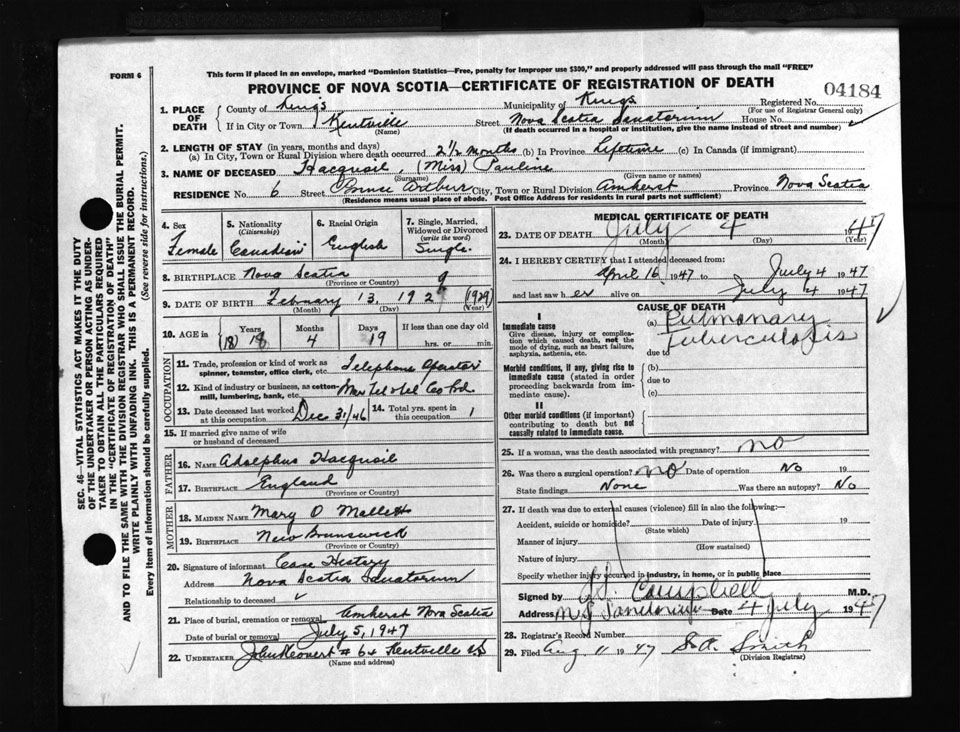 This form if placed in an envelope, marked "Dominion Statistics—Free, penalty for improper use $300," and properly addressed will pass through the mail "FREE"
FORM 6
PROVINCE OF NOVA SCOTIA—CERTIFICATE OF REGISTRATION OF DEATH
04184
1. PLACE OF DEATH
County of Kings Municipality of Kings Registered No.
(For use of Registrar General only)
If in City or Town Kentville Street Nova Scotia Sanatorium House No.
(Name) (If death occurred in a hospital or institution, give the name instead of street and number)
2. LENGTH OF STAY (in years, months and days)
(a) In City, Town or Rural Division where death occurred 2½ months (b) In Province Lifetime (c) In Canada (if immigrant)
3. NAME OF DECEASED Hacquoil, (Miss) Pauline
(Surname) (Given name or names)
RESIDENCE No. 6 Street Prince Arthur City, Town or Rural Division Amherst Province Nova Scotia
(Residence means usual place of abode. Post Office Address for residents in rural parts not sufficient)
4. Sex Female
5. Nationality (Citizenship) Canadian
6. Racial Origin English
7. Single, Married, Widowed or Divorced (write the word) Single.
8. BIRTHPLACE Nova Scotia
(Province or Country)
9. DATE OF BIRTH February 13, 1929 (1929)
(Month) (Day) (Year)
10. AGE in Years Months Days If less than one day old
(18) 18 4 19 hrs. or min.
OCCUPATION
11. Trade, profession or kind of work as spinner, teamster, office clerk, etc. Telephone Operator
12. Kind of industry or business, as cotton-mill, lumbering, bank, etc. Mar Tel & Tel Co Ltd
13. Date deceased last worked at this occupation Dec 31/46
14. Total yrs. spent in this occupation 1
15. If married give name of wife or husband of deceased
FATHER
16. NAME Adolphus Hacquoil
17. BIRTHPLACE England
(Province or Country)
MOTHER
18. MAIDEN NAME Mary O Mallett
19. BIRTHPLACE New Brunswick
(Province or Country)
20. Signature of informant Case History
Address Nova Scotia Sanatorium
Relationship to deceased
21. Place of burial, cremation or removal Amherst Nova Scotia
Date of burial or removal July 5, 1947
22. UNDERTAKER # 64 Kentville NS
(Name and address)
MEDICAL CERTIFICATE OF DEATH
23. DATE OF DEATH July 4 1947
(Month) (Day) (Year)
24. I HEREBY CERTIFY that I attended deceased from:
April 16 1947 to July 4 1947
and last saw her alive on July 4 1947
CAUSE OF DEATH
I
Immediate cause
Give disease, injury or complication which caused death, not the mode of dying, such as heart failure, asphyxia, asthenia, etc.
(a) Pulmonary Tuberculosis
due to
Morbid conditions, if any, giving rise to immediate cause (stated in order proceeding backwards from immediate cause)
(b)
due to
(c)
II
Other morbid conditions (if important) contributing to death but not causally related to immediate cause.
25. If a woman, was the death associated with pregnancy? no
26. Was there a surgical operation? no Date of operation No 19
State findings None Was there an autopsy? No
27. If death was due to external causes (violence) fill in also the following:—
Accident, suicide or homicide? Date of injury 19
(State which)
Manner of injury
(How sustained)
Nature of injury
Specify whether injury occurred in industry, in home, or in public place
Signed by Campbell M.D.
Address N.S. Sanatorium Date 4 July 1947
28. Registrar's Record Number
29. Filed Aug 11 1947 Smith
(Division Registrar)
SEC. 46—VITAL STATISTICS ACT MAKES IT THE DUTY
OF THE UNDERTAKER OR PERSON ACTING AS UNDER-
TAKER TO OBTAIN ALL THE PARTICULARS REQUIRED
IN THE "CERTIFICATE OF REGISTRATION OF DEATH"
AND TO FILE THE SAME WITH THE DIVISION REGISTRAR WHO SHALL ISSUE THE BURIAL PERMIT.
WRITE PLAINLY WITH UNFADING INK. THIS IS A PERMANENT RECORD.
Every item of information should be carefully supplied. (See reverse side for instructions.)